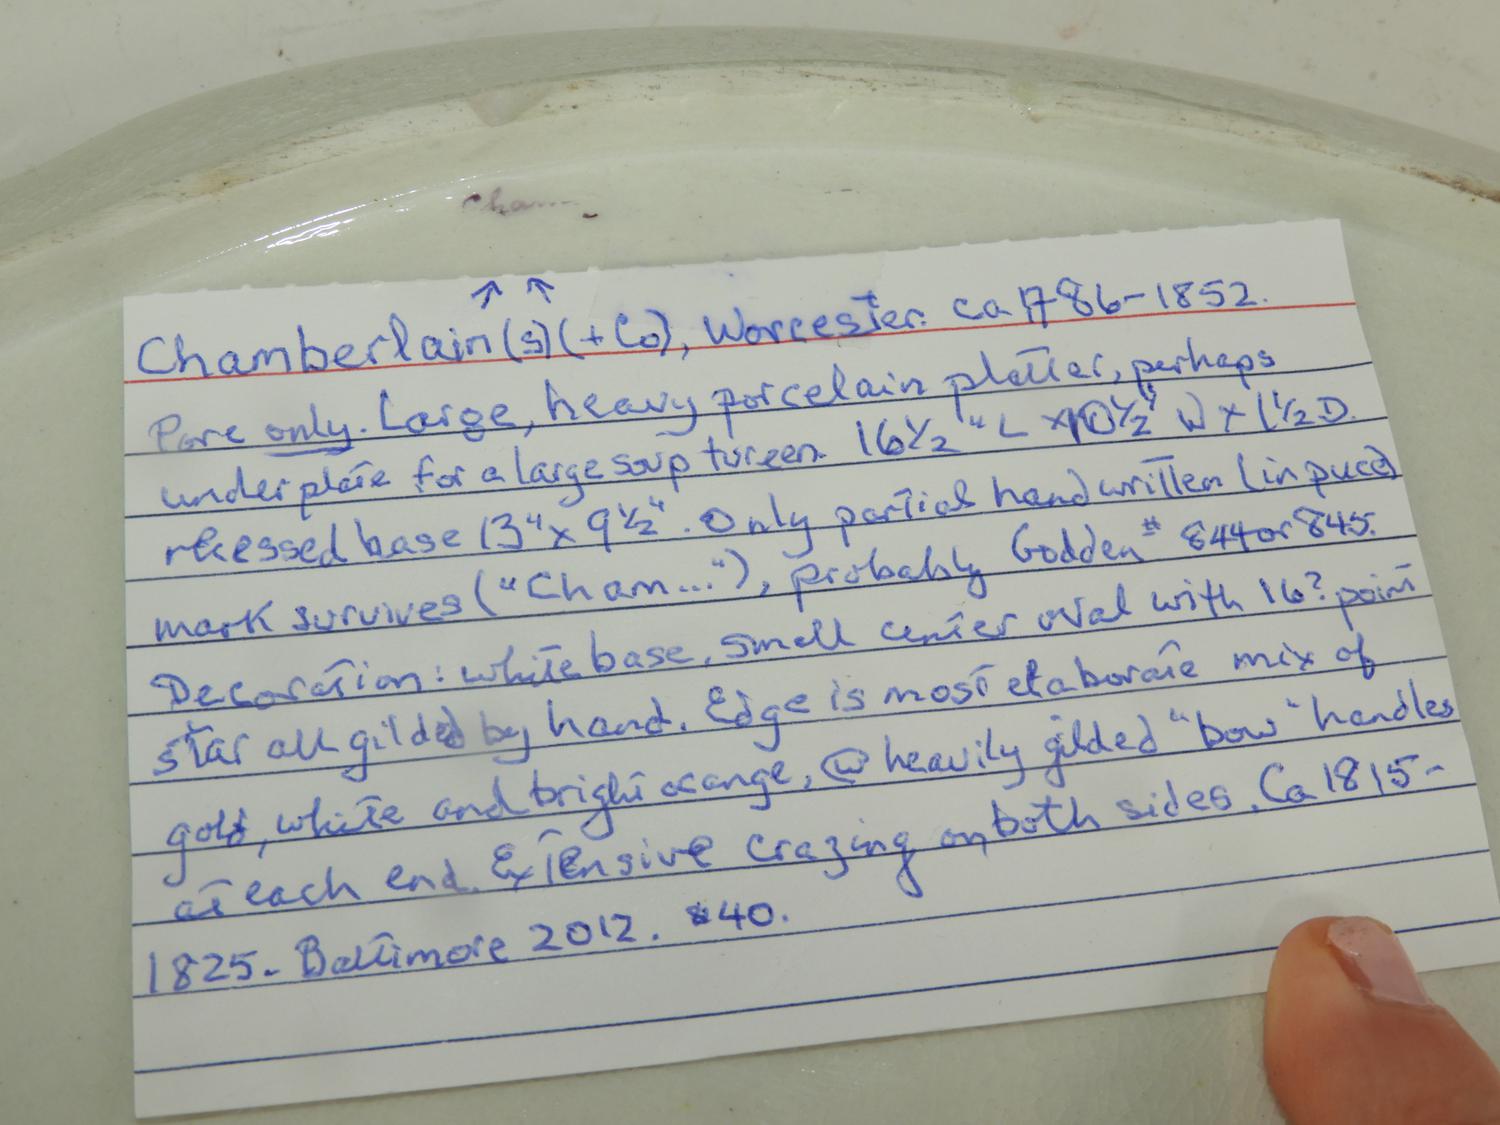 Cham...
Chamberlain(s)(+Co), Worcester. ca 1786-1852.
only. Large, heavy porcelain platter, perhaps
underplate for a large soup tureen 16½" L x 10½" W x 1½ D.
recessed base 13" x 9½". Only partial handwritten (in puce)
mark survives ("Cham..."), probably Godden # 844 or 845.
Decoration: white base, small center oval with 16? point
star all gilded by hand. Edge is most elaborate mix of
gold, white and bright orange, @ heavily gilded "bow" handles
at each end. Extensive crazing on both sides. Ca 1815-
1825. Baltimore 2012. $40.